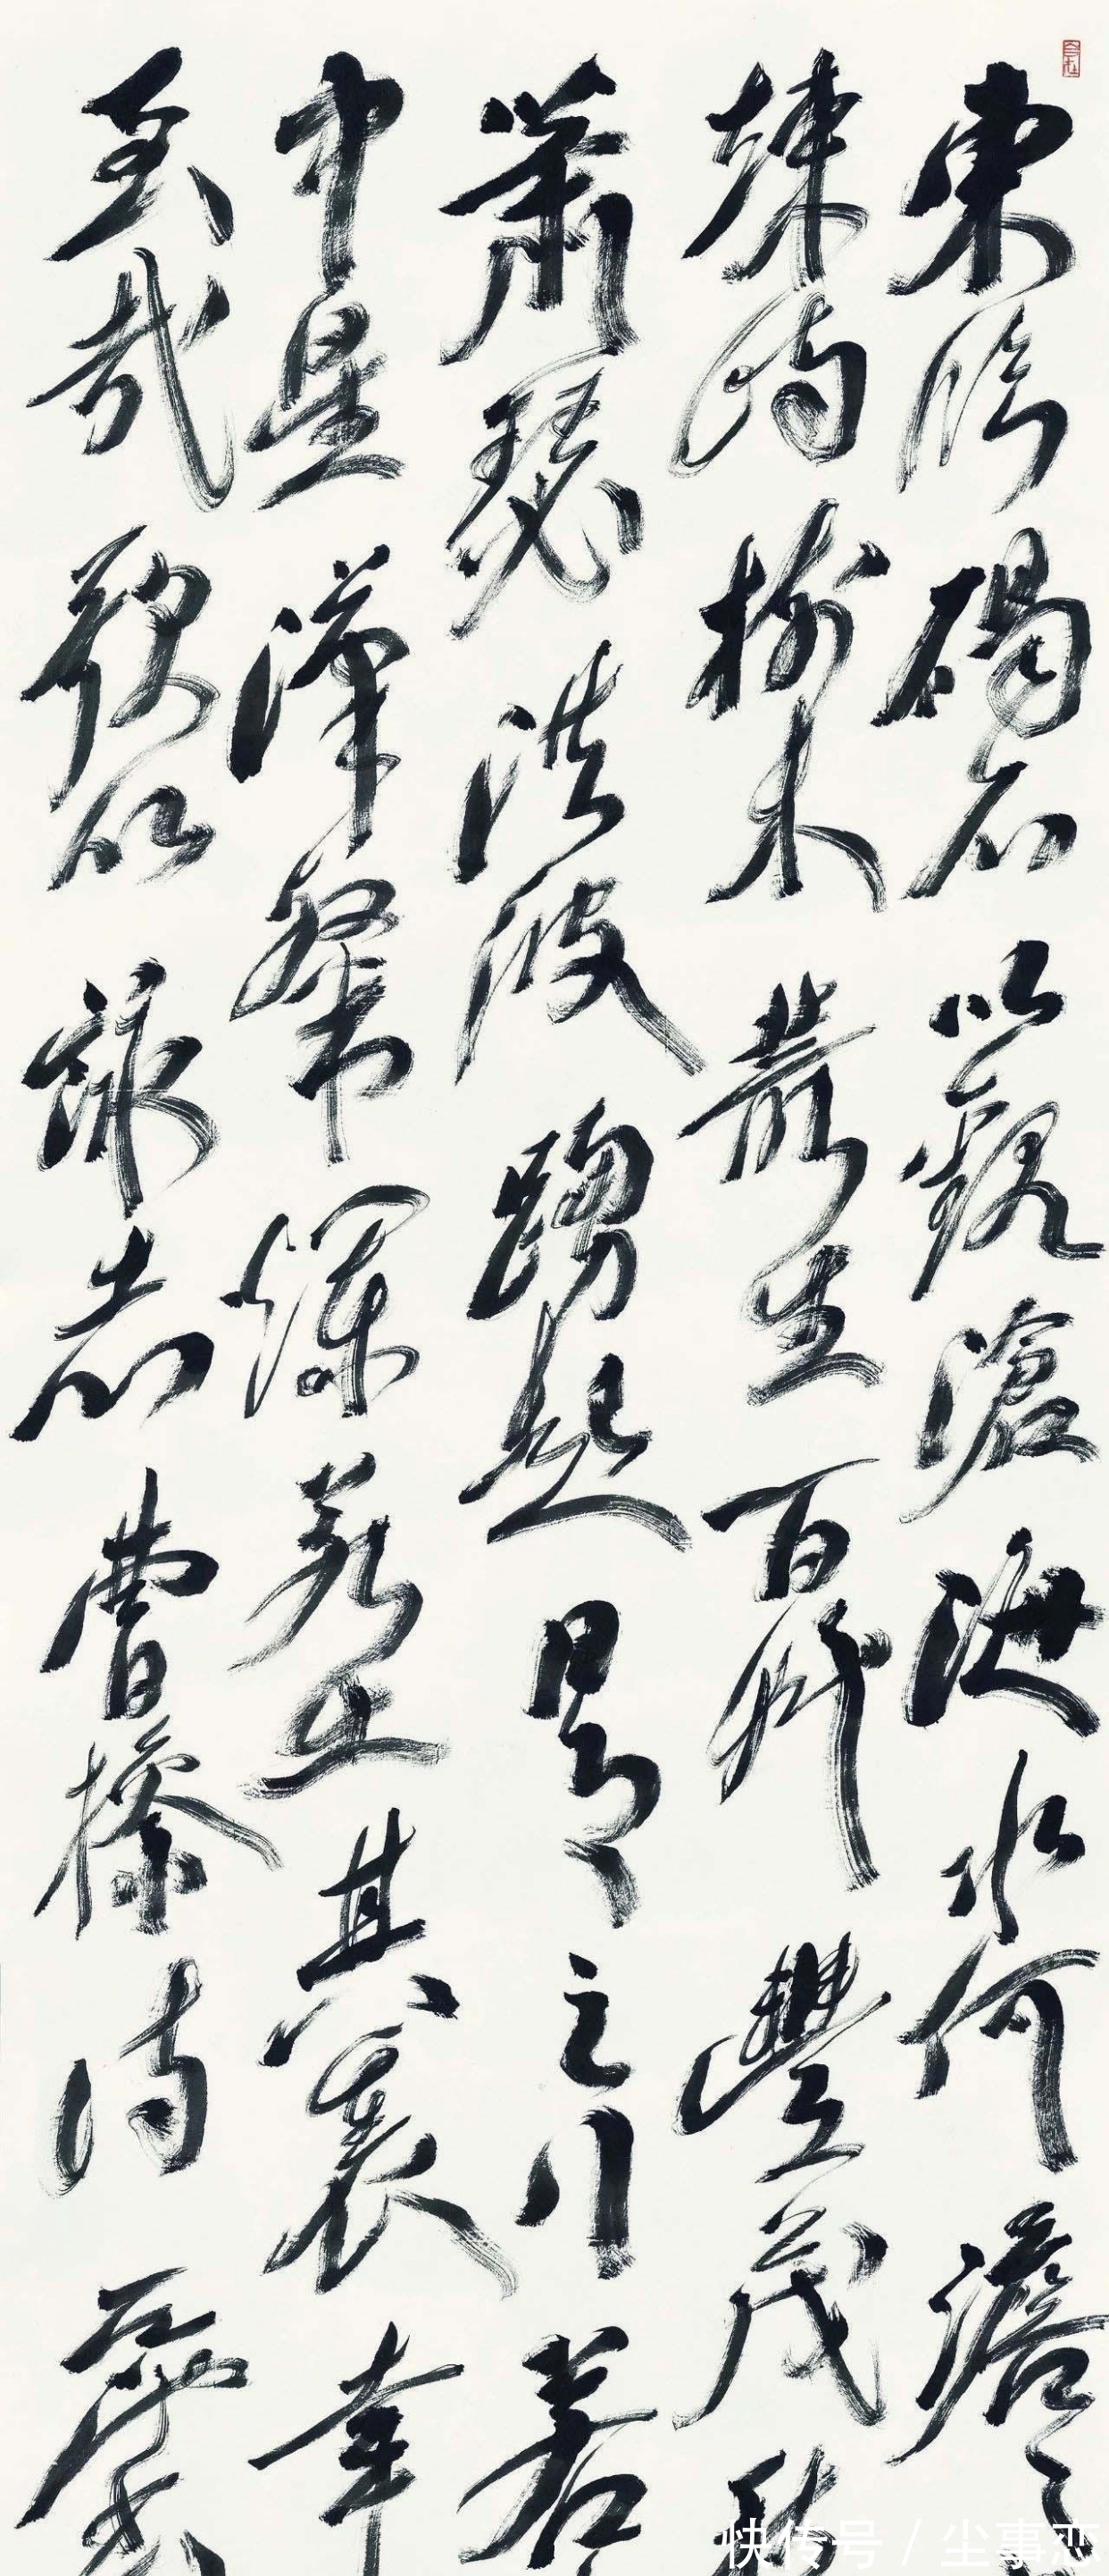 東臨碣石以觀滄海水何澹
竦峙樹木叢生百草豐茂秋
蕭瑟洪波踴起日月之行若
中星漢粲爛若出其裏幸
至哉歌以詠志曹操詩
快传号 / 尘事恋